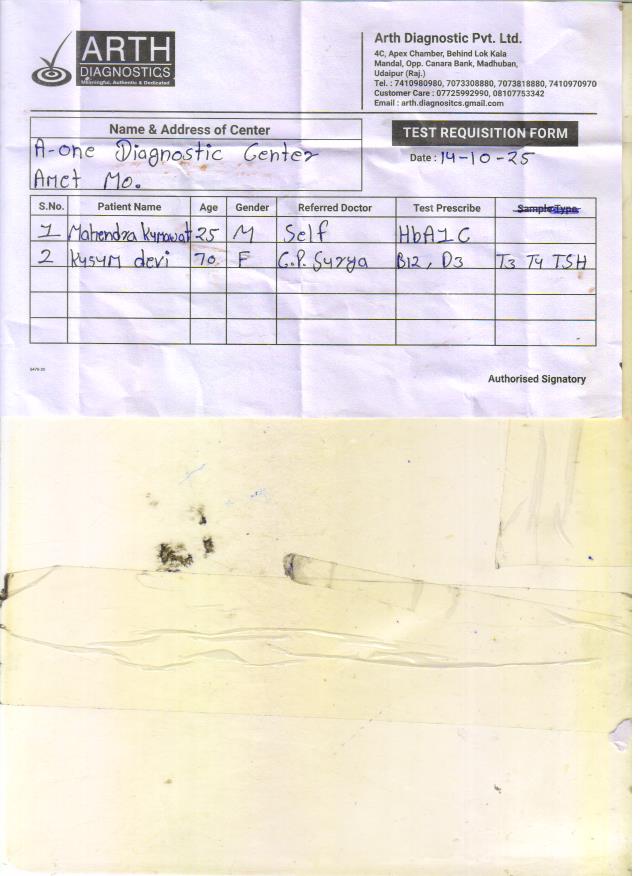 ARTH
DIAGNOSTICS
Meaningful, Authentic & Dedicated
Arth Diagnostic Pvt. Ltd.
4C, Apex Chamber, Behind Lok Kala
Mandal, Opp. Canara Bank, Madhuban,
Udaipur (Raj.)
Tel. : 7410980980, 7073308880, 7073818880, 7410970970
Customer Care : 07725992990, 08107753342
Email : arth.diagnositcs.gmail.com
Name & Address of Center
A-one Diagnostic Center
Amet Mo.
TEST REQUISITION FORM
Date : 14-10-25
S.No. Patient Name Age Gender Referred Doctor Test Prescribe Sample Type
1 Mahendra Kumawat 25 M Self HbA1C
2 Kusum devi 70 F C.P. Surya B12, D3 T3 T4 TSH
Authorised Signatory